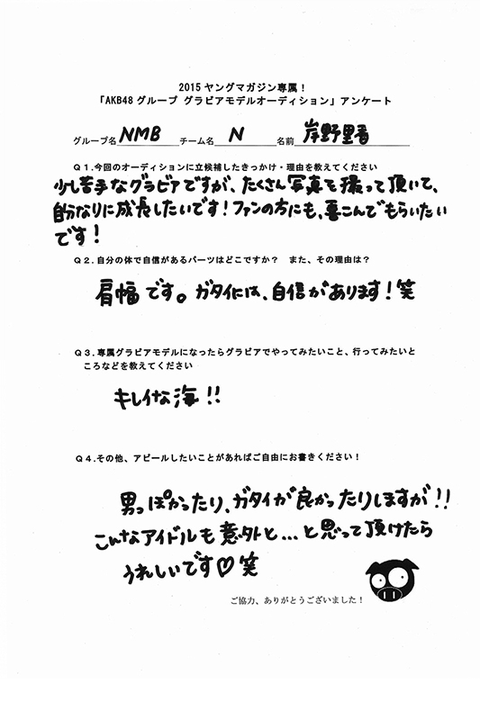 2015ヤングマガジン専属！
「AKB48グループ グラビアモデルオーディション」アンケート
グループ名 NMB チーム名 N 名前 岸野里香
Q1.今回のオーディションに立候補したきっかけ・理由を教えてください
少し苦手なグラビアですが、たくさん写真を撮って頂いて、
自分なりに成長したいです！ファンの方にも、喜こんでもらいたい
です！
Q2.自分の体で自信があるパーツはどこですか？ また、その理由は？
肩幅です。ガタイには、自信があります！笑
Q3.専属グラビアモデルになったらグラビアでやってみたいこと、行ってみたいと
ころなどを教えてください
キレイな海!!
Q4.その他、アピールしたいことがあればご自由にお書きください！
男っぽかったり、ガタイが良かったりしますが!!
こんなアイドルも意外と...と思って頂けたら
うれしいです♡笑
ご協力、ありがとうございました！